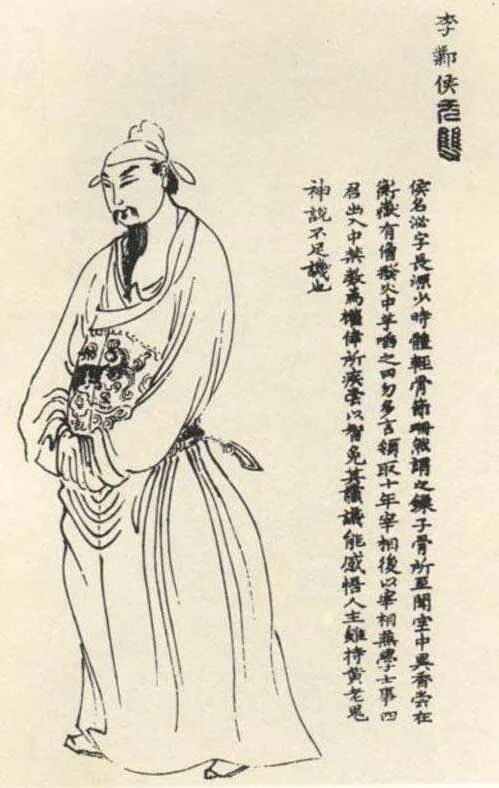 李鄴侯无雙
侯名泌字長源少時體輕骨節珊然謂之鎖子骨所至聞空中異香嘗在
衡嶽有僧撥火中芋啗之曰勿多言領取十年宰相後以宰相兼學士事四
君出入中禁數為權倖所疾嘗以智免其讜議能感悟人主雖持黃老鬼
神說不足譏也